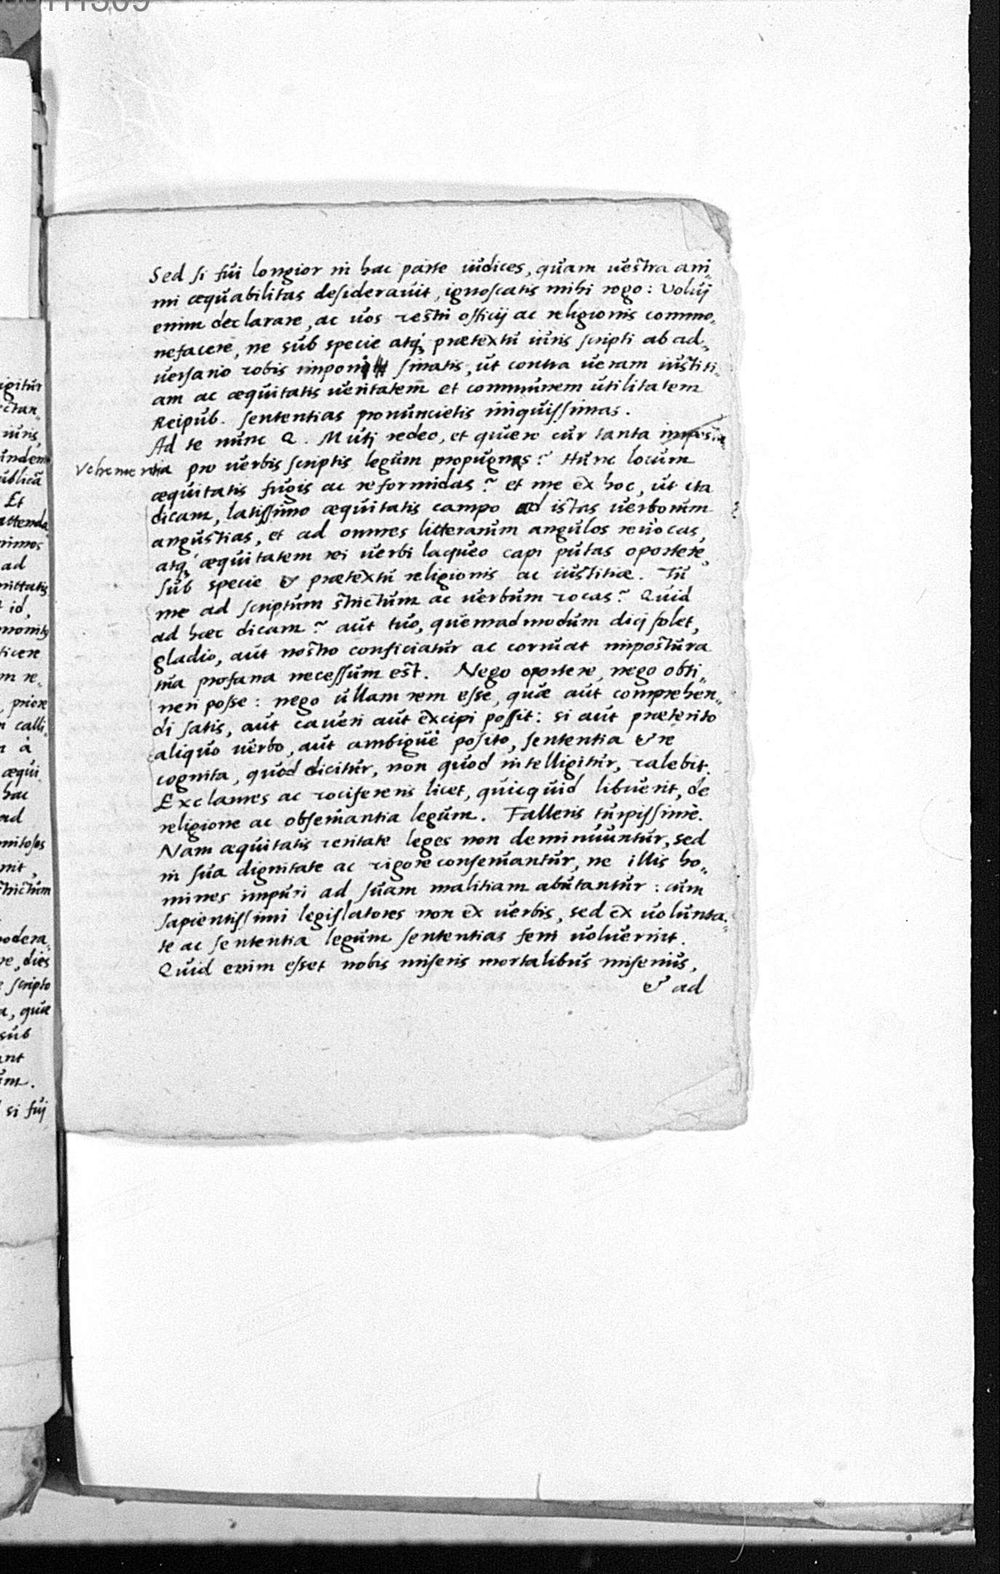 Sed si fui longior in hac parte iudices, quam uestra ani-
mi æquabilitas desiderauit, ignoscatis mihi rogo: Volui
enim declarare, ac uos vestri officij ac religionis commo-
nefacere, ne sub specie atq; prætextu iuris scripti ab ad-
uersario vobis imponi sinatis, ut contra ueram iustiti-
am ac æquitatis ueritatem et communem utilitatem
Reipub. sententias pronuncietis iniquissimas.
Ad te nunc Q. Muti redeo, et quæro cur tanta
Vehementia pro uerbis scriptis legum propugnas? Hunc locum
æquitatis fugis ac reformidas? et me ex hoc, ut ita
dicam, latissimo æquitatis campo ad istas uerborum
angustias, et ad omnes litterarum angulos reuocas,
atq; æquitatem rei uerbi laqueo capi putas oportere,
sub specie & prætextu religionis ac iustitiæ. Tu
me ad scriptum strictum ac uerbum vocas? Quid
ad hæc dicam? aut tuo, quemadmodum dici solet,
gladio, aut nostro conficiatur ac corruat impostura
tua profana necessum est. Nego oportere, nego obti-
neri posse: nego ullam rem esse, quæ aut comprehen-
di satis, aut caueri aut excipi possit: si aut præterito
aliquo uerbo, aut ambigue posito, sententia & re
cognita, quod dicitur, non quod intelligitur, valebit.
Exclames ac vocifereris licet, quicquid libuerit, de
religione ac obseruantia legum. Falleris turpissime.
Nam æquitatis veritate leges non deminuuntur, sed
in sua dignitate ac vigore conseruantur, ne illis ho-
mines impuri ad suam malitiam abutantur: cum
sapientissimi legislatores non ex uerbis, sed ex uolunta-
te ac sententia legum sententias ferri uoluerint.
Quid enim esset nobis miseris mortalibus miserius,
& ad